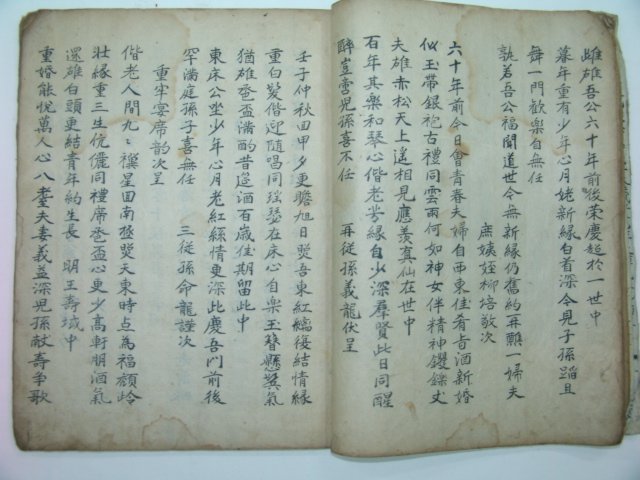 雌雄吾公六十年前後榮慶超於一世中
暮年重有少年心月姥新緣白首深今見子孫蹈且
舞一門歡樂自無任
孰若吾公福聞道世今無新緣仍舊約再醮一婦夫
庶姨姪柳培敬次
六十年前今日會青春夫婦自西東佳肴旨酒新婚
似玉帶銀袍古禮同雲雨何如神女伴精神钁鑠丈
夫雄赤松天上遙相見應羨真仙在世中
百年其樂和琴心偕老芳緣自少深羣賢此日同醒
醉豈啻兒孫喜不任
再從孫義龍伏呈
壬子仲秋田甲夕更瞻旭日煚吾東紅繻復結情緣
重白髮偕迎隨唱同瑤瑟在床心自樂玉簪懸鬢氣
猶雄卺盃滿酌昔遙酒百歲佳期留此中
東床公坐少年心月老紅絲情更深此慶吾門前後
罕滿庭孫子喜無任
三從孫命龍謹次
重牢宴席韵次呈
偕老人間九九襈星回南極煚天東時点為福顏岭
壯緣重三生伉儷同禮席卺盃心更少高軒朋酒氣
還雄白頭更結青年約生長
明王壽域中
重婚能悅萬人心八耋夫妻義益深兒孫献壽爭歌